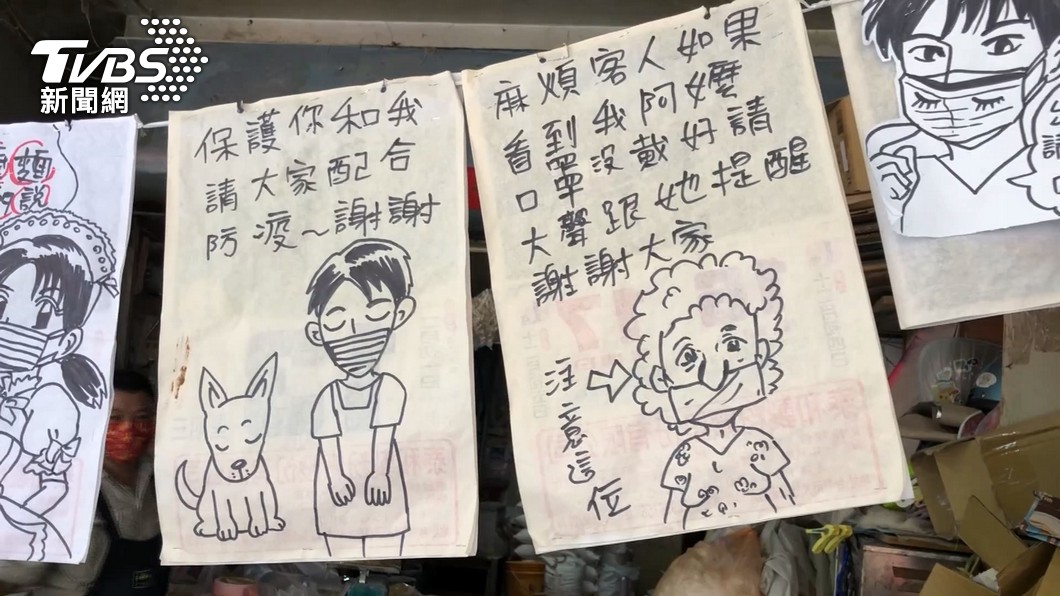 TVBS
新聞網
麵
說
保護你和我
請大家配合
防疫~謝謝
麻煩客人如果
看到我阿嬤
口罩沒戴好請
大聲跟她提醒
謝謝大家
注意這位